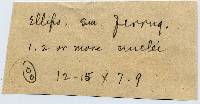 Ellips. sm. ferrug.
1. 2 or more nuclei
12-15 x 7.9